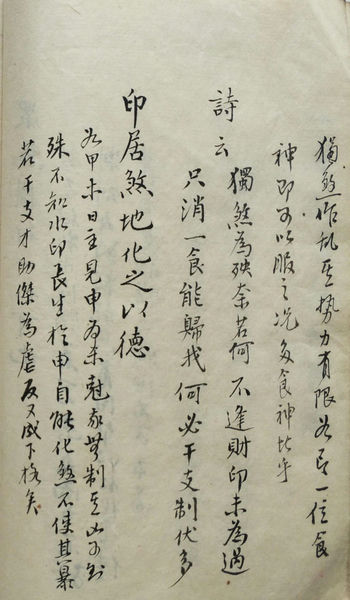 獨煞作乱其势力有限如只一位食
神即可以服之况多食神比乎
詩云
獨煞為殃奈若何不逢財印未為過
只消一食能歸我何必干支制伏多
印居煞地化之以德
如甲木日主見申為木尅我無制其凶可知
殊不知水印長生於申自能化煞不使其暴
若干支才助傑為虐反又成下格矣